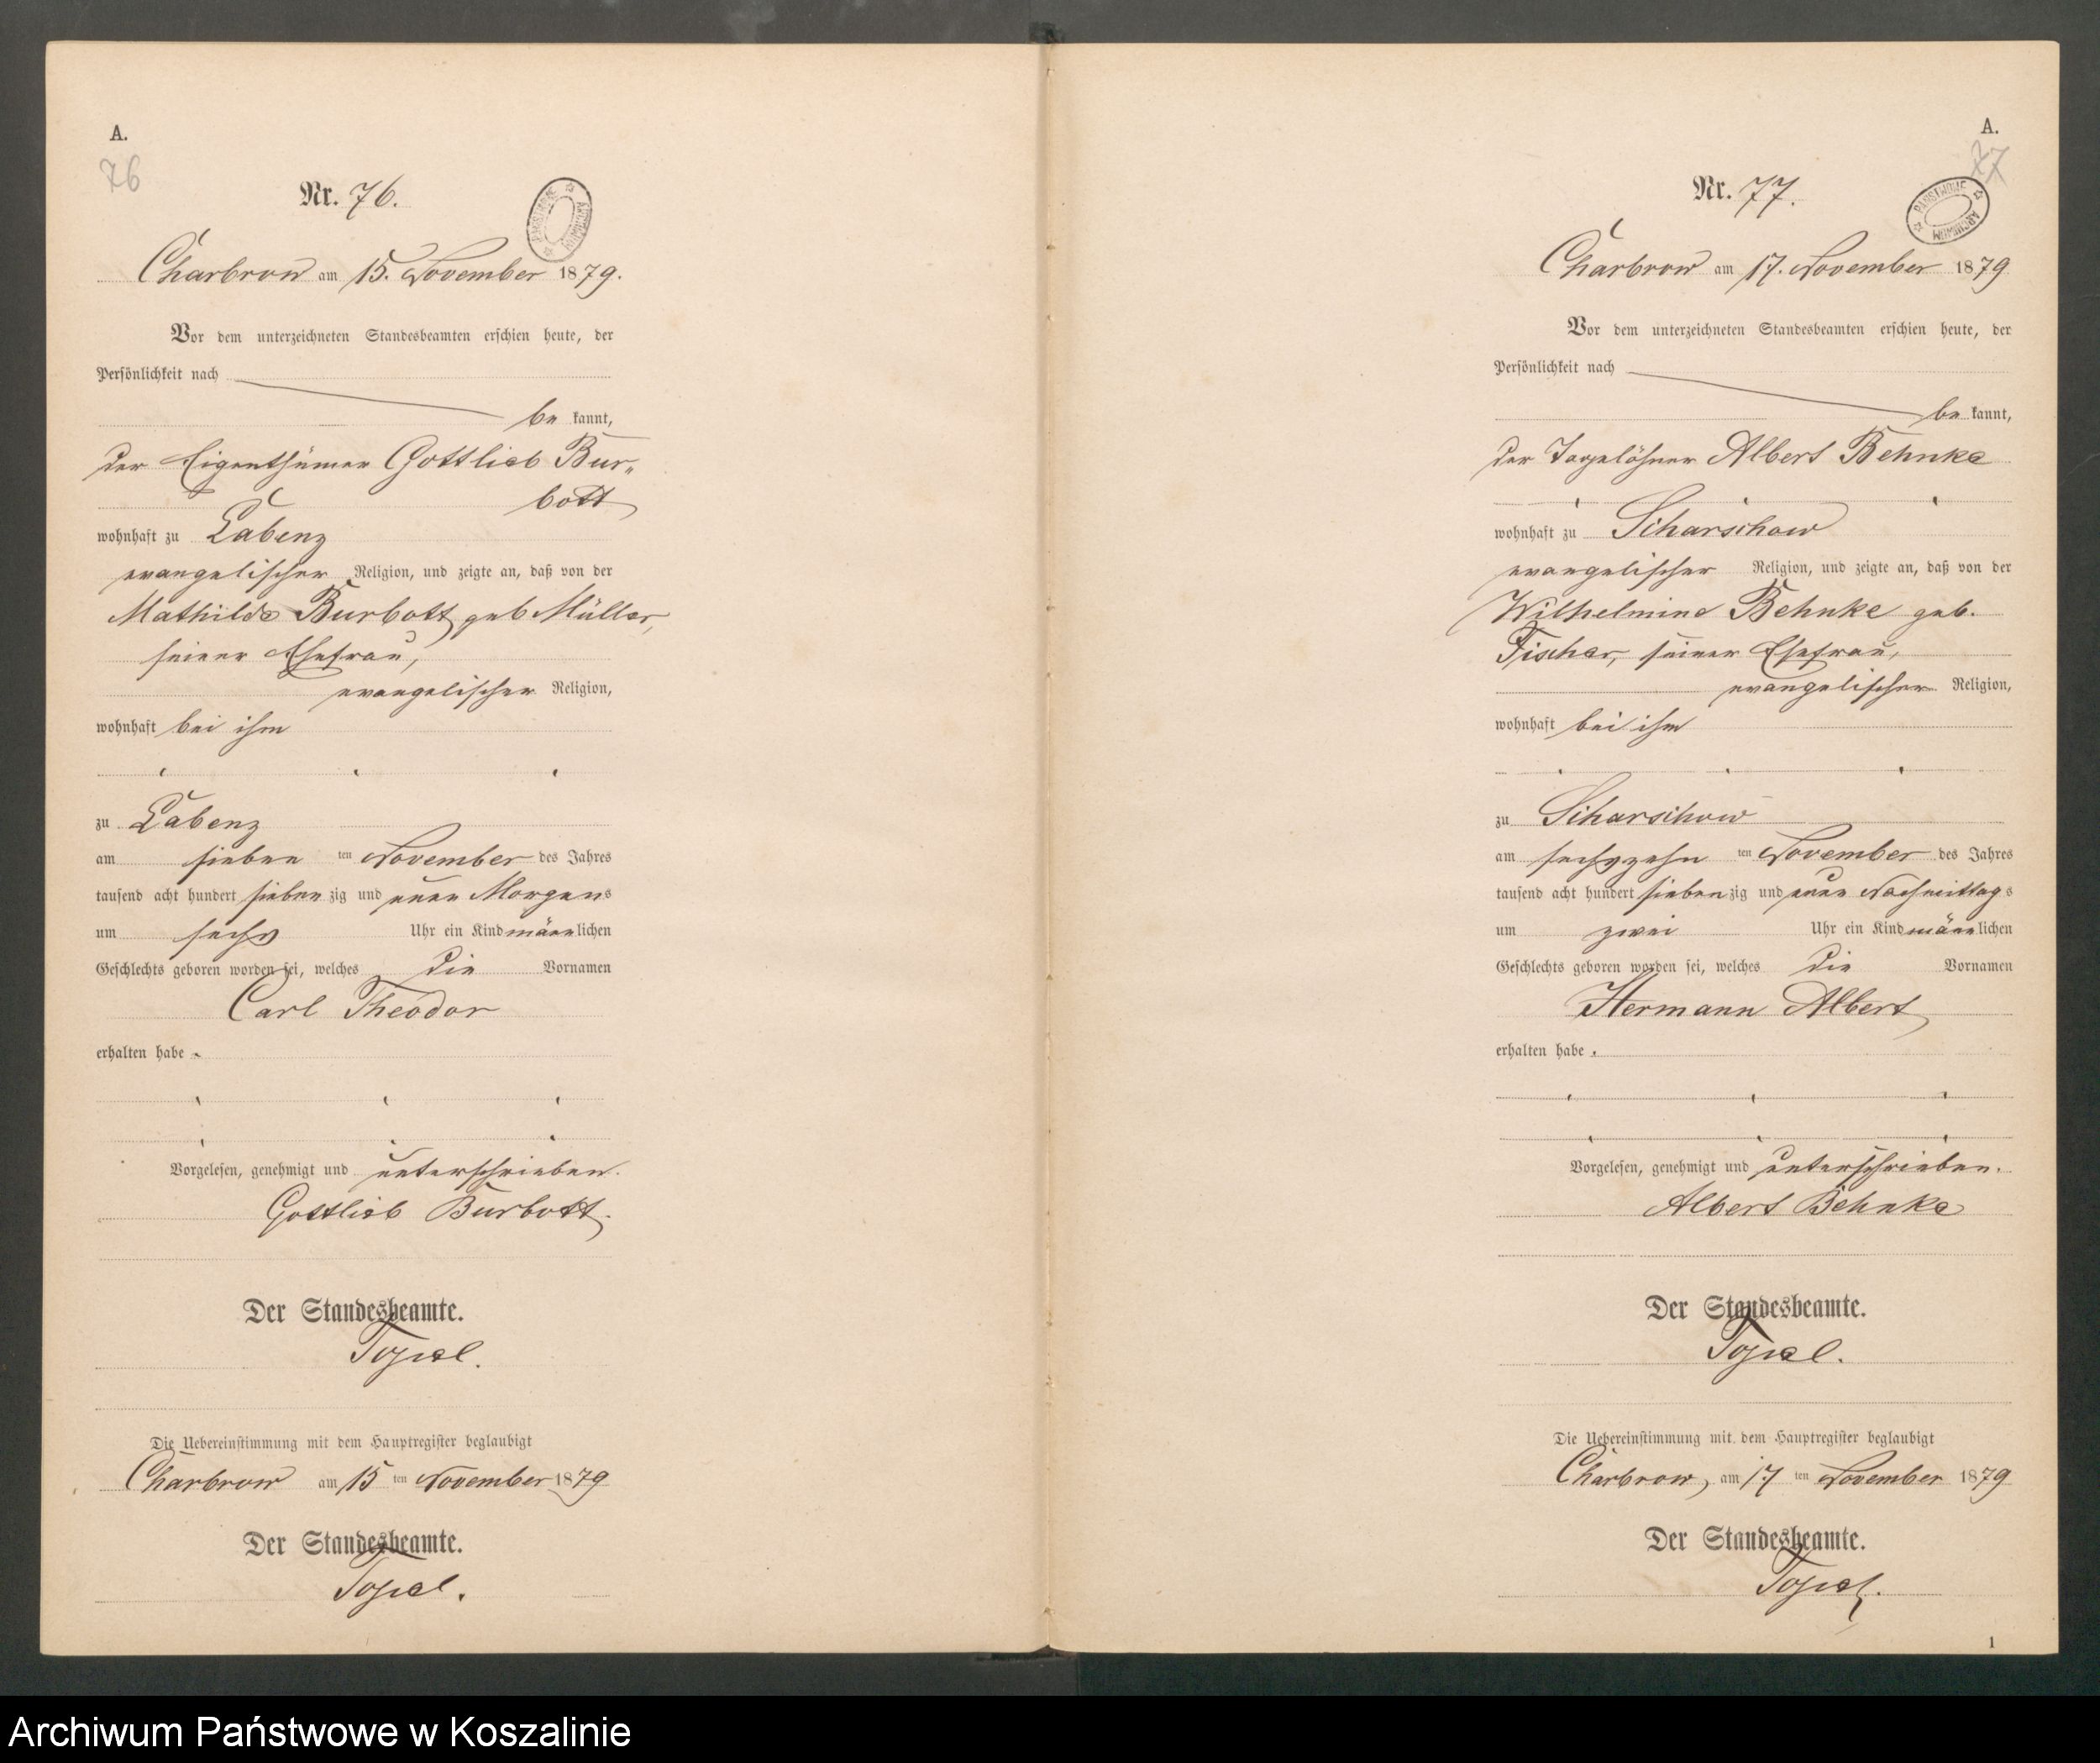 A.
76
Nr. 76.
PAŃSTWOWE ARCHIWUM
Charbrow am 15. November 1879.
Vor dem unterzeichneten Standesbeamten erschien heute, der
Persönlichkeit nach
be kannt,
der Eigenthümer Gottlieb Bur-
bott
wohnhaft zu Labenz
evangelischer Religion, und zeigte an, daß von der
Mathilde Burbott geb. Müller,
seiner Ehefrau,
evangelischer Religion,
wohnhaft bei ihm
zu Labenz
am sieben ten November des Jahres
tausend acht hundert sieben zig und neun Morgens
um sechs Uhr ein Kind männlichen
Geschlechts geboren worden sei, welches die Vornamen
Carl Theodor
erhalten habe.
Vorgelesen, genehmigt und unterschrieben.
Gottlieb Burbott.
Der Standesbeamte.
Die Uebereinstimmung mit dem Hauptregister beglaubigt
Charbrow am 15 ten November 1879
Der Standesbeamte.
A.
77
Nr. 77.
PAŃSTWOWE ARCHIWUM
Charbrow am 17. November 1879
Vor dem unterzeichneten Standesbeamten erschien heute, der
Persönlichkeit nach
be kannt,
der Tagelöhner Albert Behnke
wohnhaft zu Scharschow
evangelischer Religion, und zeigte an, daß von der
Wilhelmine Behnke geb.
Fischer, seiner Ehefrau,
evangelischer Religion,
wohnhaft bei ihm
zu Scharschow
am sechszehn ten November des Jahres
tausend acht hundert sieben zig und neun Nachmittags
um zwei Uhr ein Kind männlichen
Geschlechts geboren worden sei, welches die Vornamen
Hermann Albert
erhalten habe.
Vorgelesen, genehmigt und unterschrieben.
Albert Behnke
Der Standesbeamte.
Die Uebereinstimmung mit dem Hauptregister beglaubigt
Charbrow, am 17 ten November 1879
Der Standesbeamte.
1
Archiwum Państwowe w Koszalinie